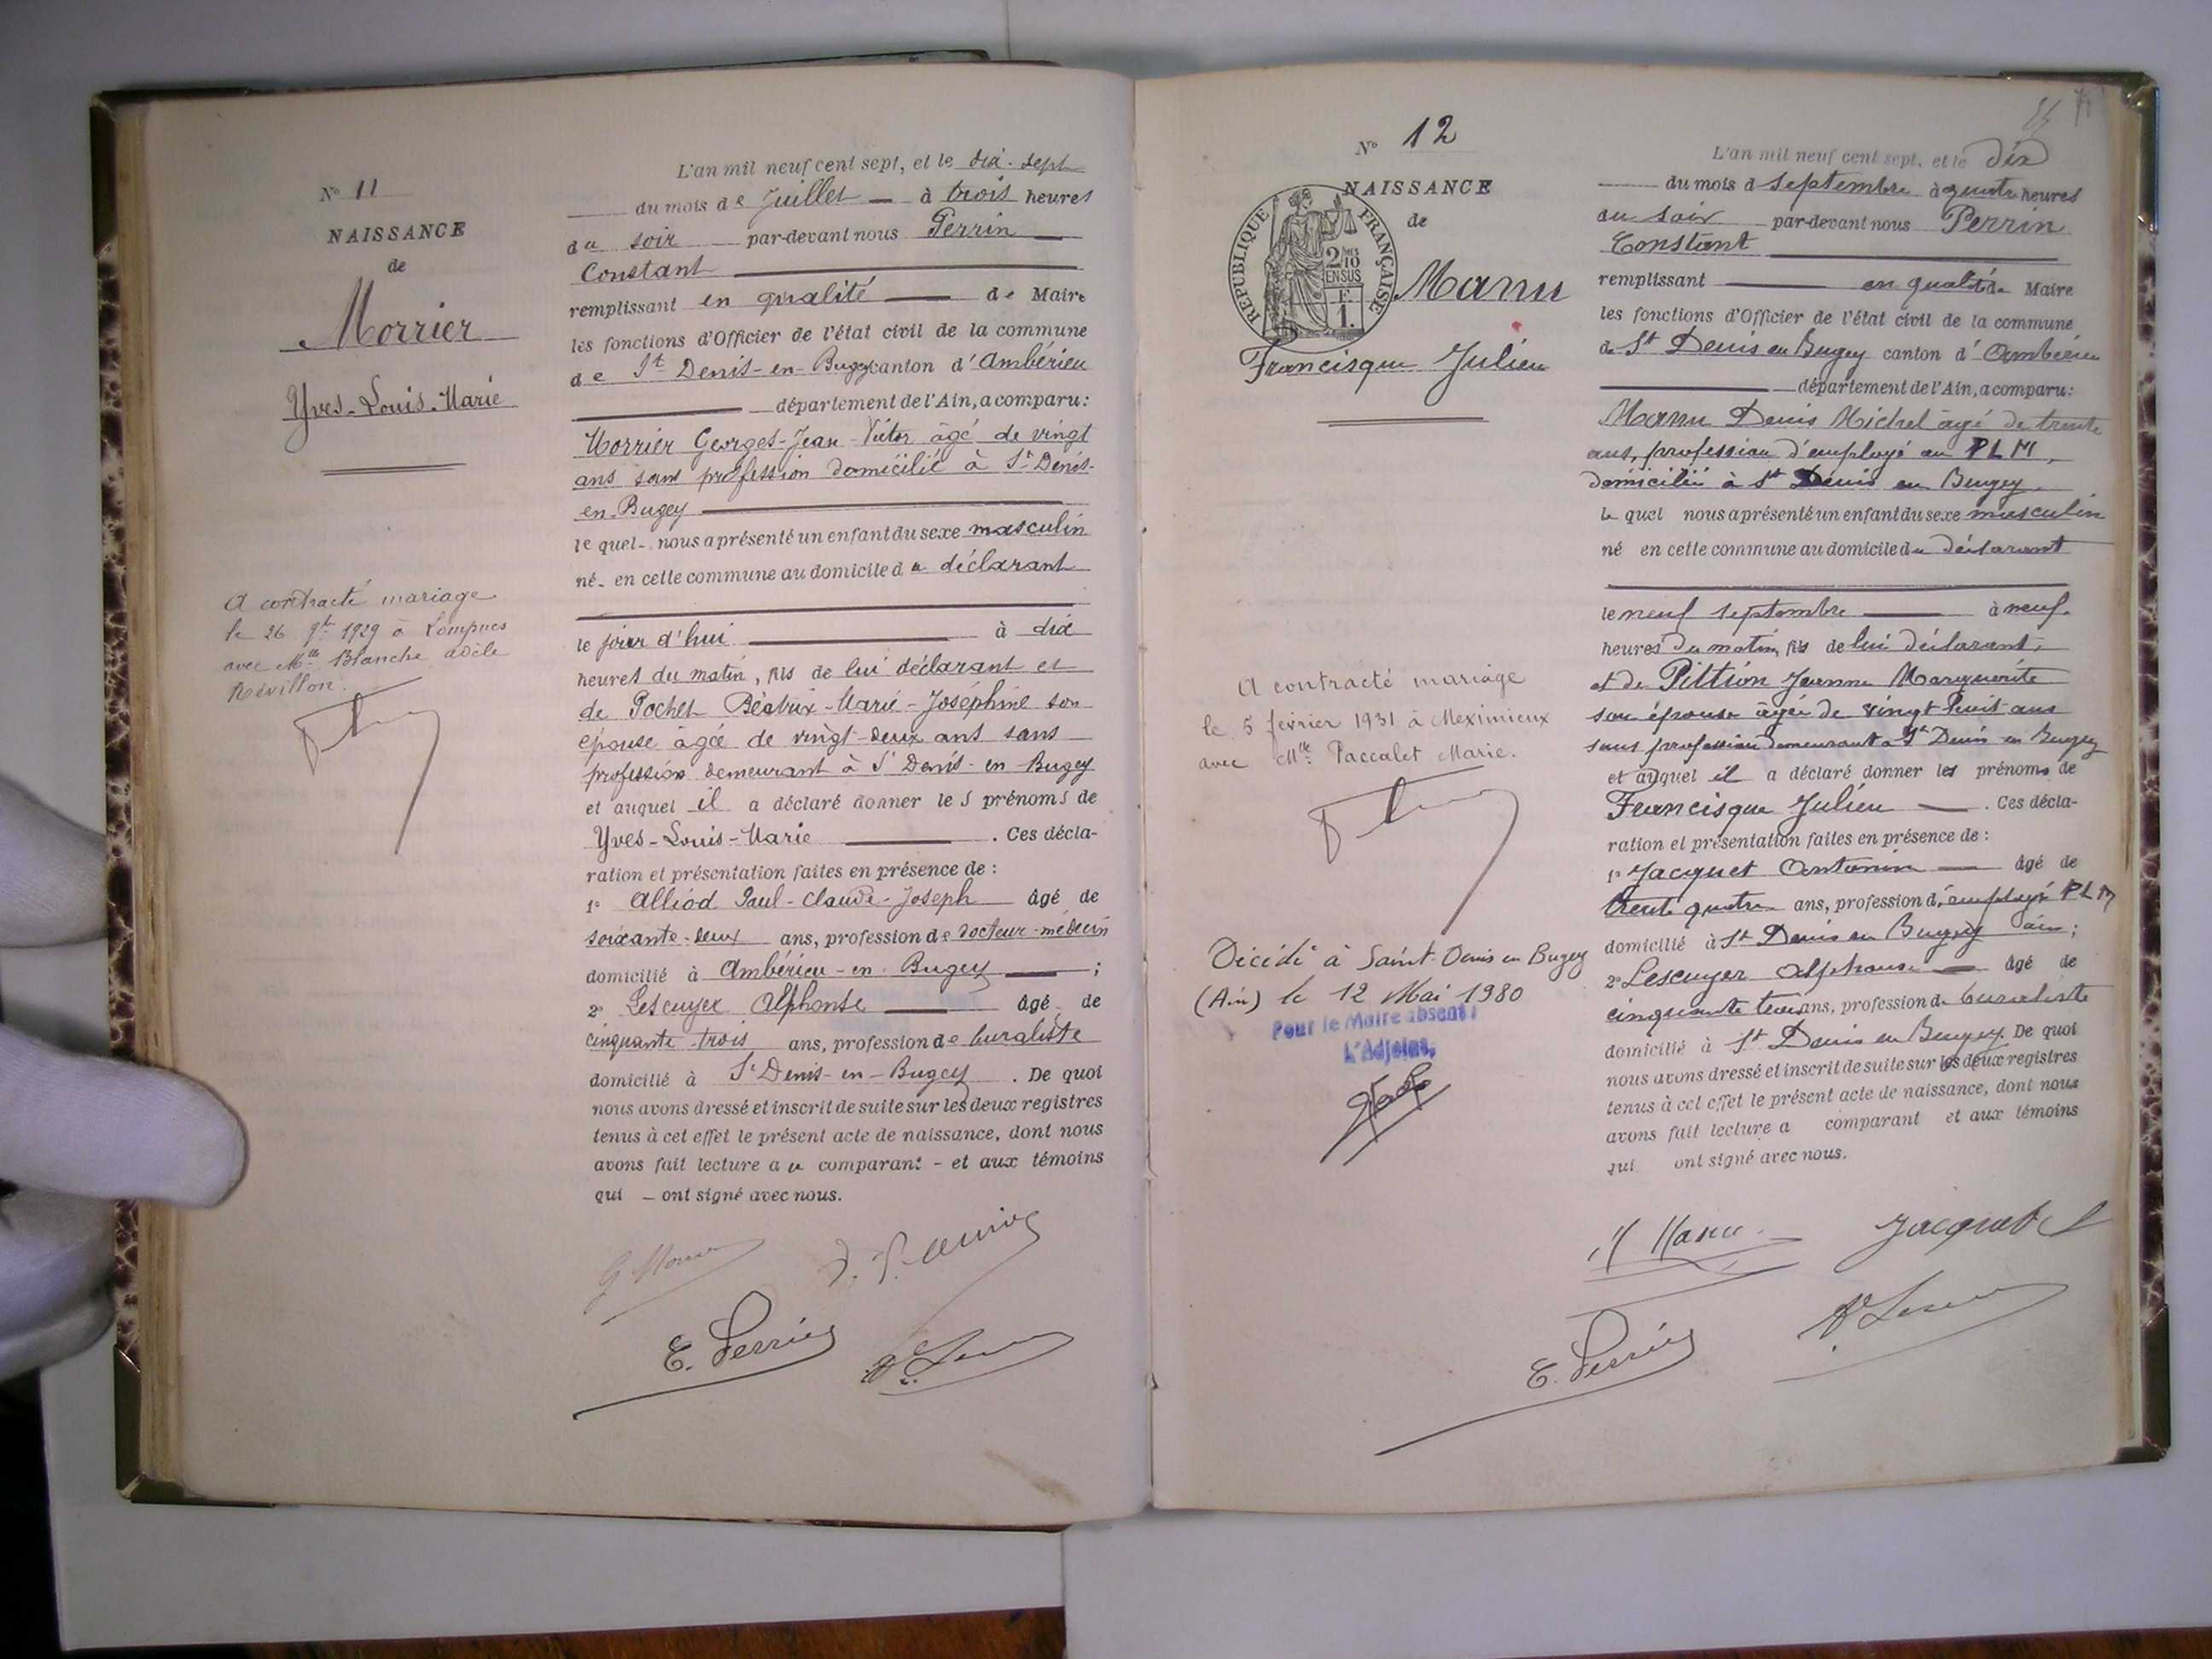 N° 11
NAISSANCE
de
Morrier
Yves-Louis-Marie
A contracté mariage
le 26 9bre 1929 à Lompnes
avec Mlle Blanche Adèle
Révillon.
L'an mil neuf cent sept, et le dix-sept
du mois de Juillet à trois heures
du soir par-devant nous Perrin
Constant
remplissant en qualité de Maire
les fonctions d'Officier de l'état civil de la commune
de St Denis-en-Bugey canton d'Ambérieu
département de l'Ain, a comparu:
Morrier Georges-Jean-Victor âgé de vingt
ans sans profession domicilié à St Denis-
en-Bugey
lequel nous a présenté un enfant du sexe masculin
né en cette commune au domicile du déclarant
le jour d'hui à dix
heures du matin, fils de lui déclarant et
de Pochet Béatrix-Marie-Joséphine son
épouse âgée de vingt-deux ans sans
profession demeurant à St Denis-en-Bugey
et auquel il a déclaré donner les prénoms de
Yves-Louis-Marie. Ces décla-
ration et présentation faites en présence de :
1° Alliod Paul-Claude-Joseph âgé de
soixante-deux ans, profession de docteur-médecin
domicilié à Ambérieu-en-Bugey ;
2° Lescuyer Alphonse âgé de
cinquante-trois ans, profession de buraliste
domicilié à St Denis-en-Bugey. De quoi
nous avons dressé et inscrit de suite sur les deux registres
tenus à cet effet le présent acte de naissance, dont nous
avons fait lecture au comparant - et aux témoins
qui - ont signé avec nous.
E. Perrin
N° 12
NAISSANCE
de
RÉPUBLIQUE FRANÇAISE
2/10
EN SUS
F.
1.
Manu
Francisque Julien
A contracté mariage
le 5 février 1931 à Meximieux
avec Mlle Paccalet Marie.
Décédé à Saint-Denis en Bugey
(Ain) le 12 Mai 1980
Pour le Maire absent
L'Adjoint,
L'an mil neuf cent sept, et le dix
du mois d septembre à quatre heures
du soir par-devant nous Perrin
Constant
remplissant en qualité de Maire
les fonctions d'Officier de l'état civil de la commune
de St Denis en Bugey canton d'Ambérieu
département de l'Ain, a comparu:
Manu Denis Michel âgé de trente
ans, profession d'employé au PLM,
domicilié à St Denis en Bugey
lequel nous a présenté un enfant du sexe masculin
né en cette commune au domicile du déclarant
le neuf septembre à neuf
heures du matin, fils de lui déclarant,
et de Pittion Jeanne Marguerite
son épouse âgée de vingt huit ans
sans profession demeurant à St Denis en Bugey
et auquel il a déclaré donner les prénoms de
Francisque Julien. Ces décla-
ration et présentation faites en présence de :
1° Jacquet Antonin âgé de
trente quatre ans, profession d'employé PLM
domicilié à St Denis en Bugey Ain ;
2° Lescuyer Alphonse âgé de
cinquante trois ans, profession de buraliste
domicilié à St Denis en Bugey. De quoi
nous avons dressé et inscrit de suite sur les deux registres
tenus à cet effet le présent acte de naissance, dont nous
avons fait lecture a comparant et aux témoins
qui ont signé avec nous.
Manu
Jacquet
E. Perrin